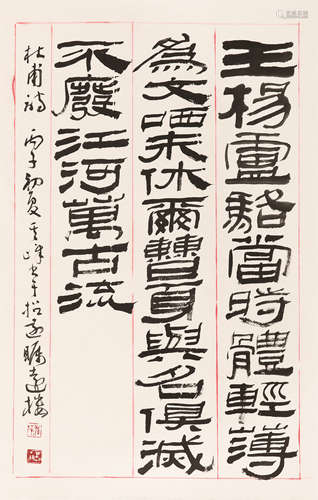 王楊盧駱當時體輕薄
為文哂未休爾曹身與名俱滅
不廢江河萬古流
杜甫詩 丙子初夏